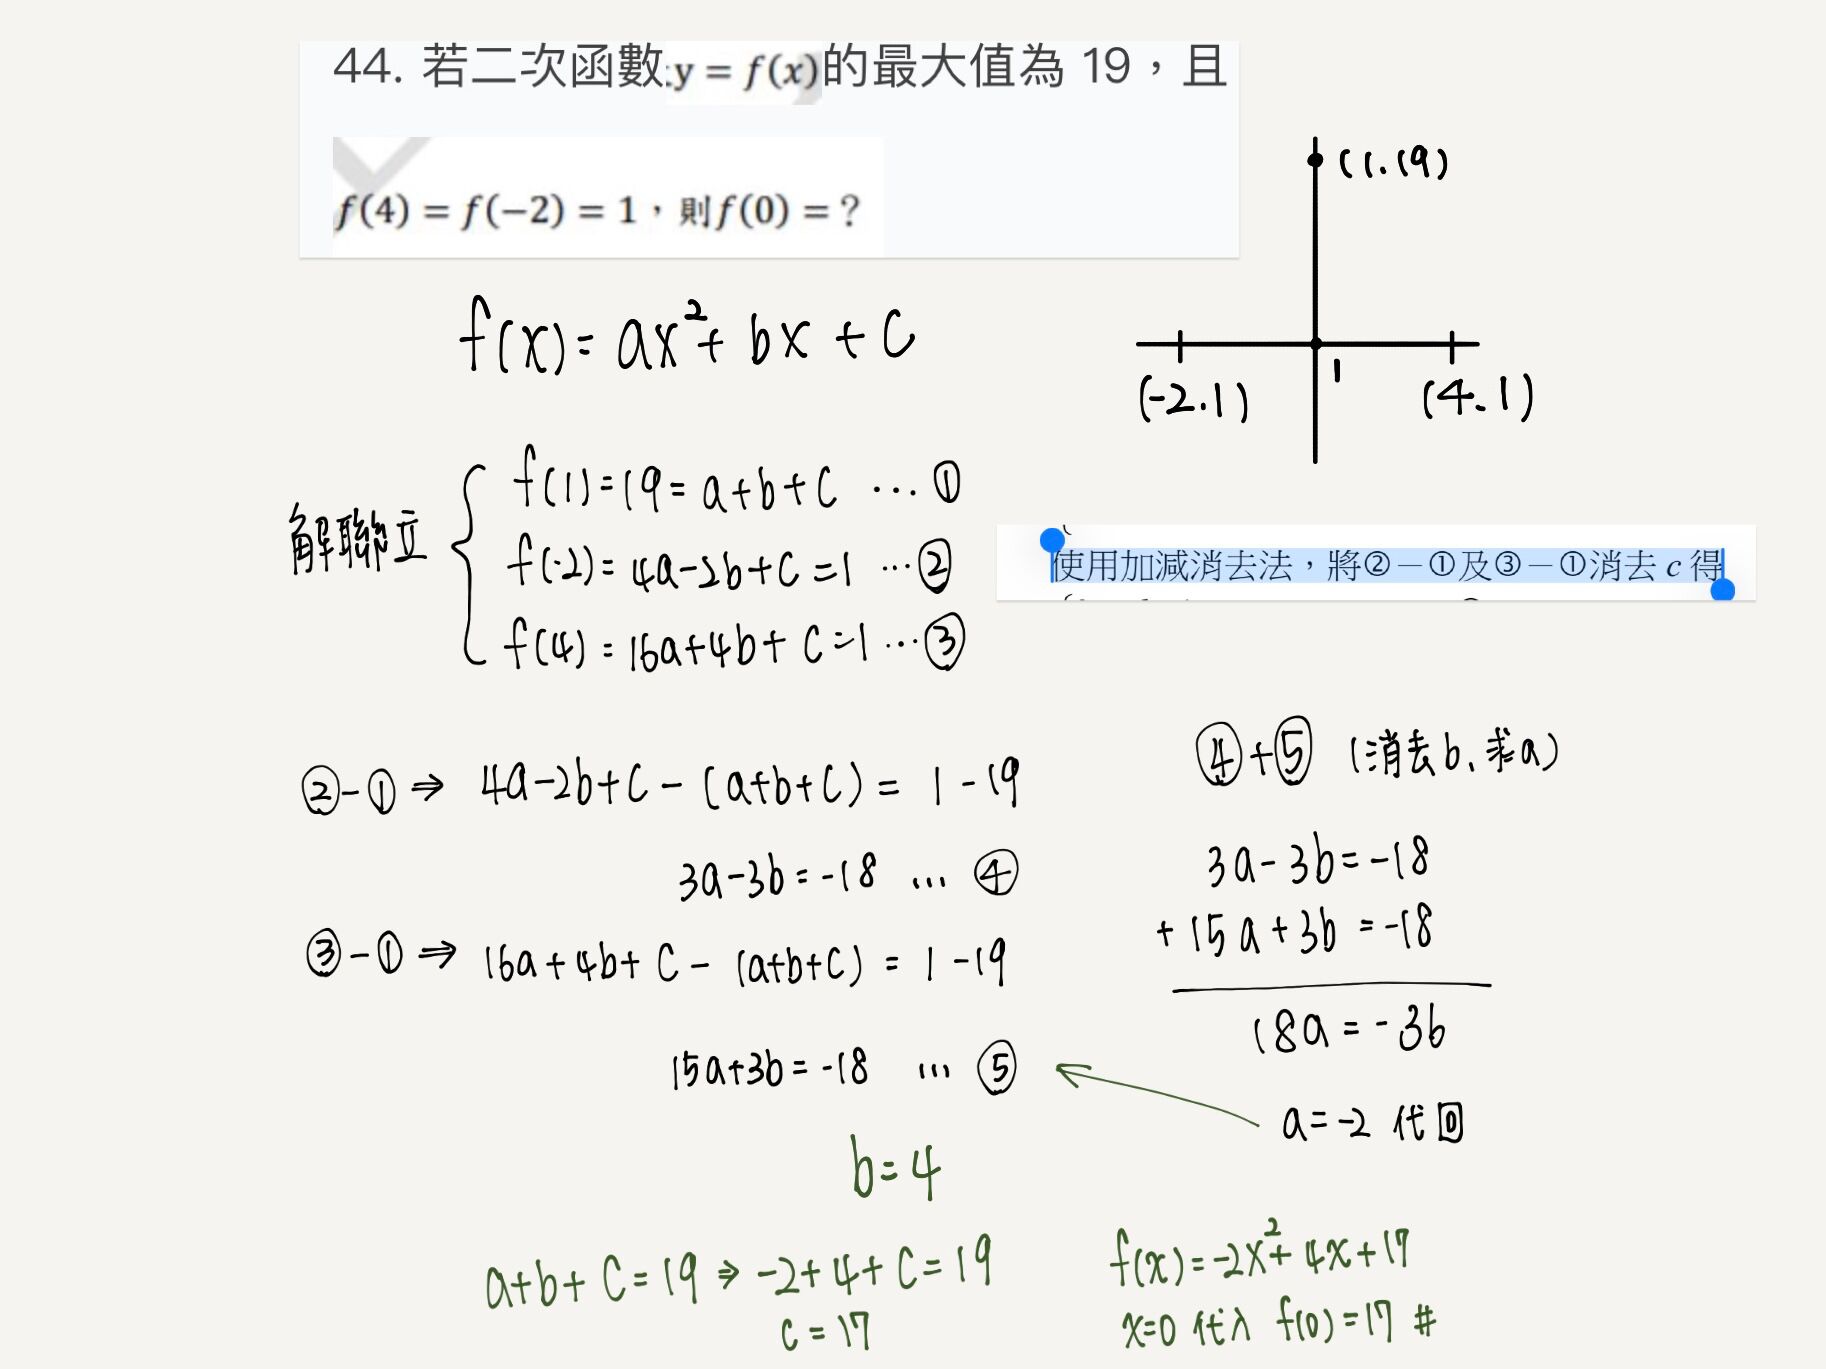 44. 若二次函數 y = f(x) 的最大值為 19，且
f(4) = f(−2) = 1，則f(0) = ?
(1.19)
(-2.1) 1 (4.1)
f(x) = ax²+ bx + c
解聯立
f(1)=19= a+b+c ... ①
f(-2)= 4a-2b+c =1 ... ②
f(4) = 16a+4b+ c =1 ... ③
使用加減消去法，將②－①及③－①消去 c 得
②-① ⇒ 4a-2b+c - (a+b+c) = 1 -19
3a-3b = -18 ... ④
③-① ⇒ 16a+4b+ c - (a+b+c) = 1 -19
15a+3b = -18 ... ⑤
④+⑤ (消去b、求a)
3a- 3b= -18
+ 15a+3b = -18
18a = -36
a= -2 代回
b= 4
a+b+ c =19 ⇒ -2+4+ c =19
c = 17
f(x) = -2x²+ 4x+17
x=0 代入 f(0) =17 #